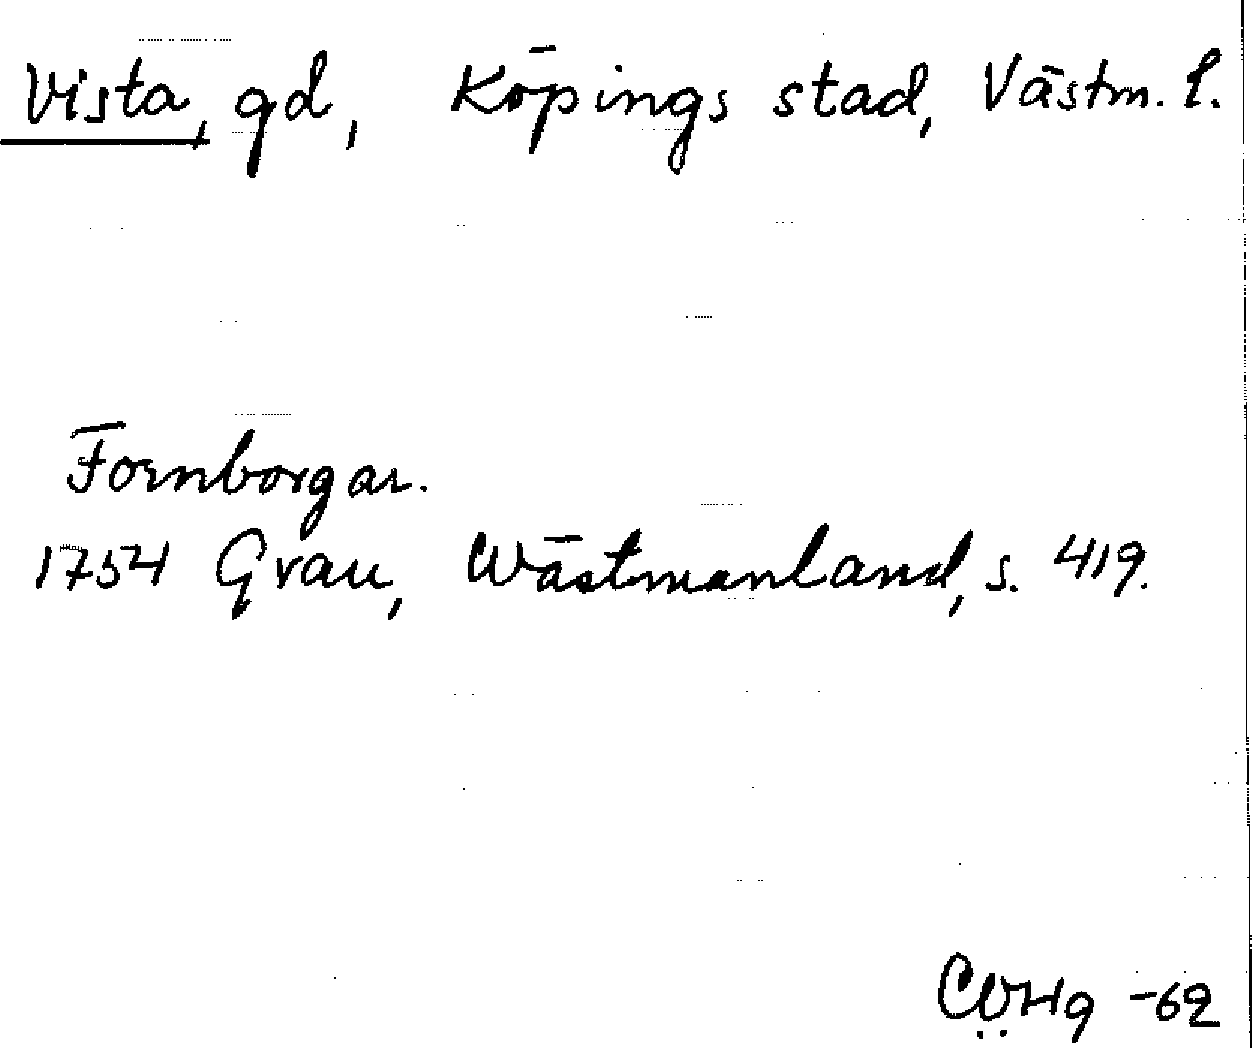 Vista, gd, Köpings stad, Västm. l.
Fornborgar.
1754 Grau, Wästmanland, s. 419.
-62